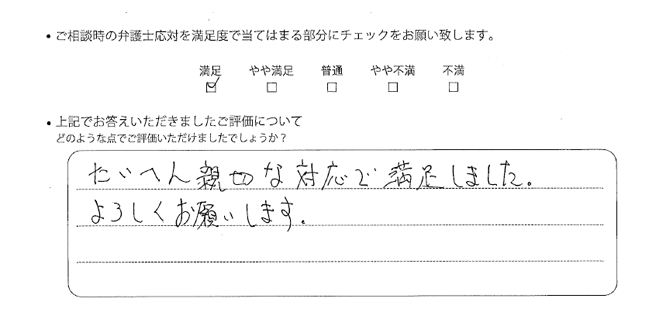 ・ご相談時の弁護士応対を満足度で当てはまる部分にチェックをお願い致します。
満足 やや満足 普通 やや不満 不満
☑ □ □ □ □
・上記でお答えいただきましたご評価について
どのような点でご評価いただけましたでしょうか?
たいへん親切な対応で満足しました。
よろしくお願いします。